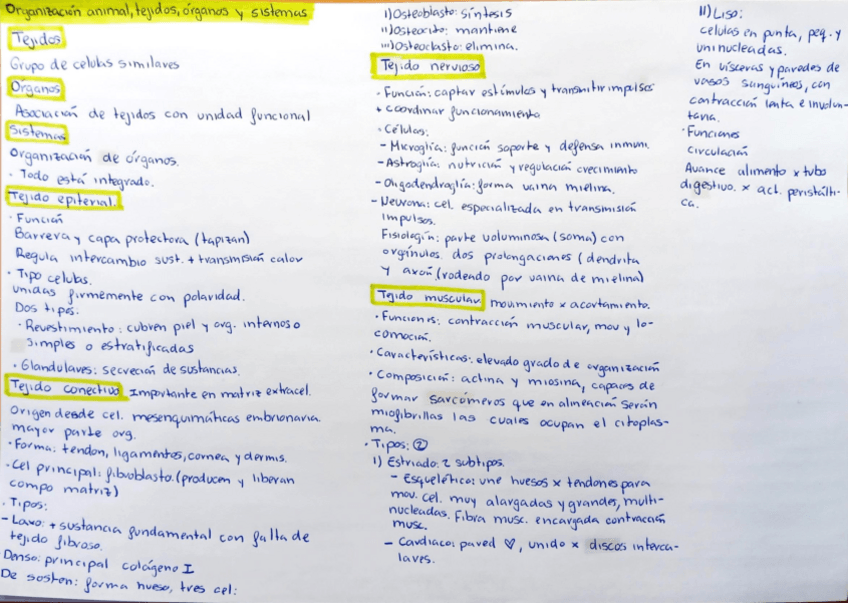 Organización animal, tejidos, órganos y sistemas
Tejidos
Grupo de celulas similares
Órganos
Asociación de tejidos con unidad funcional
Sistemas
Organización de órganos.
· Todo está integrado.
Tejido epiterial.
· Función
Barrera y capa protectora (tapizan)
Regula intercambio sust. + transmisión calor
· Tipo celulas.
unidas firmemente con polaridad.
Dos tipos.
· Revestimiento: cubren piel y org. internos o
simples o estratificadas
· Glandulares: secreción de sustancias.
Tejido conectivo Importante en matriz extracel.
Origen desde cel. mesenquimáticas embrionaria.
mayor parte org.
· Forma: tendon, ligamentos, cornea y dermis.
· Cel principal: fibroblasto. (producen y liberan
compo matriz)
· Tipos:
- Laxo: + sustancia fundamental con falta de
tejido fibroso.
Denso: principal colágeno I
De sosten: forma hueso, tres cel:
i) Osteoblasto: síntesis
ii) Osteocito: mantiene
iii) Osteoclasto: elimina.
Tejido nervioso
· Función: captar estímulos y transmitir impulsos
+ coordinar funcionamiento
· Células:
- Microglía: función soporte y defensa inmuni.
- Astroglía: nutrición y regulación crecimiento
- Oligodendroglía: forma vaina mielina.
- Neurona: cel. especializada en transmisión
impulsos.
Fisiología: parte voluminosa (soma) con
orgánulos. dos prolongaciones (dendrita
y axón (rodeado por vaina de mielina)
Tejido muscular. movimiento x acortamiento.
· Funciones: contracción muscular, mov y lo-
comoción.
· Características: elevado grado de organización
· Composición: actina y miosina, capaces de
formar sarcómeros que en alineación serán
miofibrillas las cuales ocupan el citoplas-
ma.
· Tipos: ②
I) Estriado: 2 subtipos.
- Esquelético: une huesos x tendones para
mov. cel. muy alargadas y grandes, multi-
nucleadas. Fibra musc. encargada contracción
musc.
- Cardiaco: pared ♡, unido x discos interca-
laves.
II) Liso:
celulas en punta, peq. y
uninucleadas.
En vísceras y paredes de
vasos sanguíneos, con
contracción lenta e involun-
taria.
· Funciones
circulación
Avance alimento x tubo
digestivo. x act. peristálti-
ca.